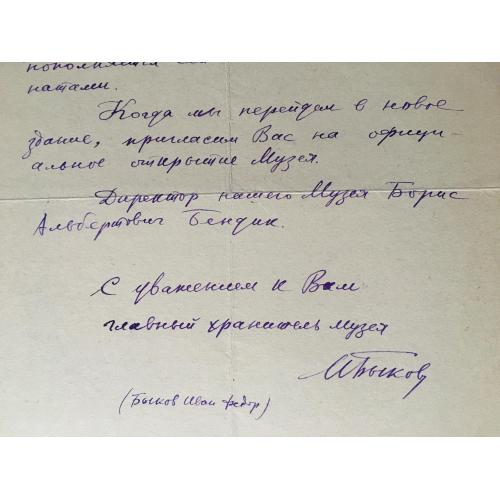 пополняется
натами.
Когда мы перейдем в новое
здание, пригласим Вас на офици-
альное открытие Музея.
Директор нашего Музея Борис
Альбертович Бендик.
С уважением к Вам
главный хранитель музея
ИБыков
(Быков Иван Федор)